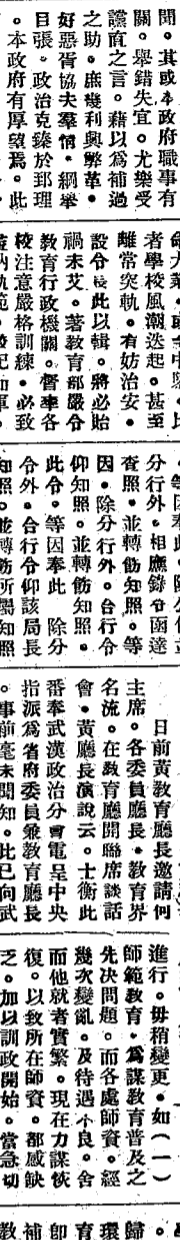 聞。其或本政府職事有
闕。舉錯失宜。尤樂受
讜直之言。藉以爲補過
之助。庶幾利興弊革。
好惡胥協夫羣情。綱舉
目張。政治克臻於郅理
。本政府有厚望焉。此
者學校風潮迭起。甚至
離常突軌。有妨治安。
設令長此以輯。將必貽
禍未艾。著敎育部嚴令
敎育行政機關。督率各
校注意嚴格訓練。必致
分行外。相應錄令函達
查照。並轉飭知照。等
因。除分行外。合行令
仰知照。並轉飭知照。
此令。等因奉此　除分
令外。合行令仰該局長
知照。並轉飭所屬知照
日前黃敎育廳長邀請何
主席。各委員廳長。敎育界
名流。在敎廳開聯席談話
會。黃廳長演說云。士衡此
番奉武漢政治分會電呈中央
指派爲省府委員兼敎育廳長
。事前毫未聞知。此已向武
進行。毋稍變更。如（一）
師範敎育。爲謀敎育普及之
先決問題。而各處師資。經
幾次變亂。及待遇不良。舍
而他就者實繁。現在力謀恢
復。以致所在師資。都感缺
乏。加以訓政開始。當急切
歸
環
育
卽
補
敎